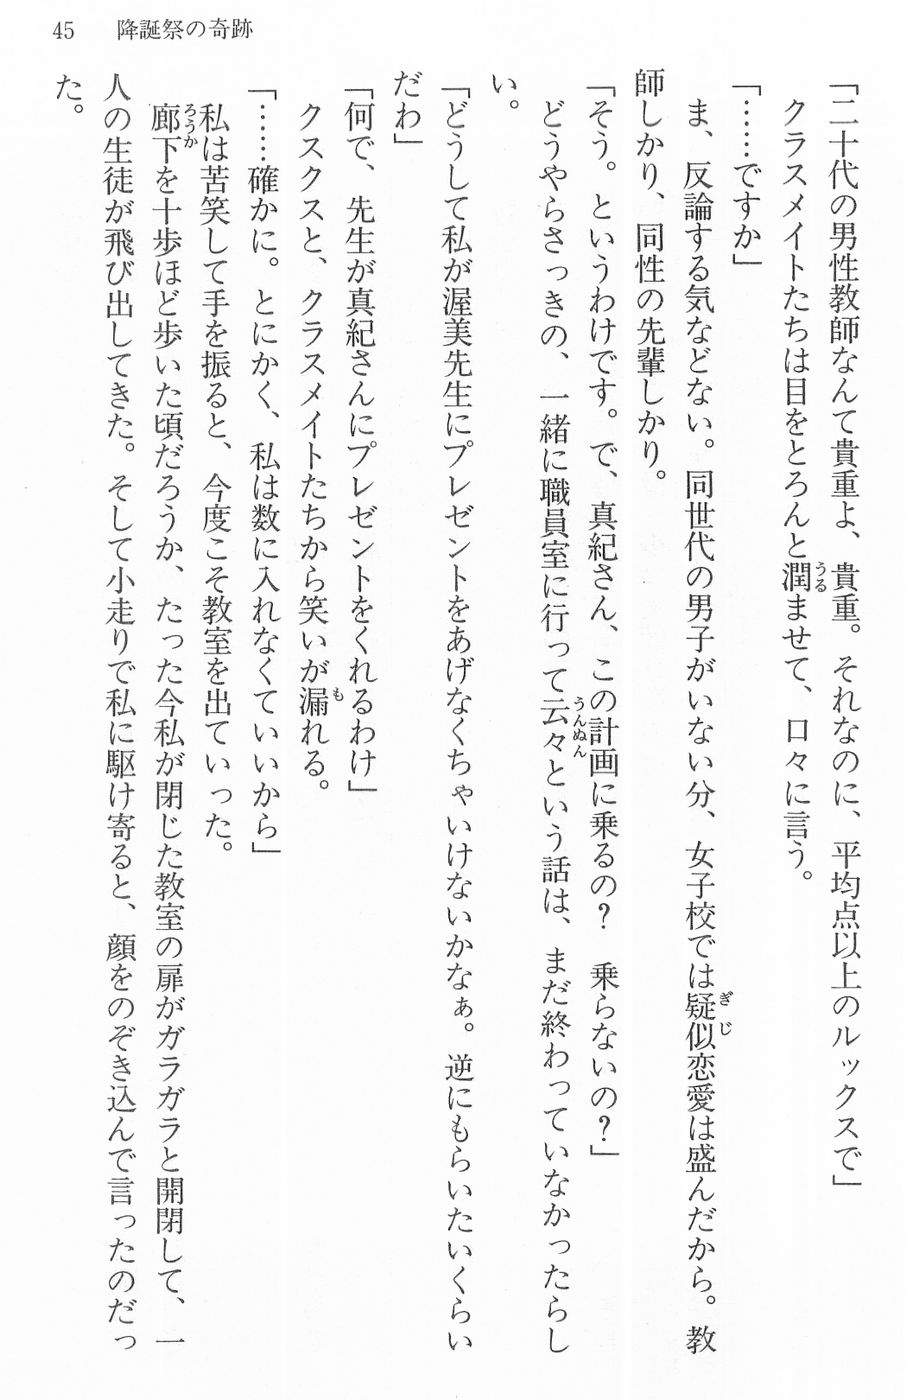 45　降誕祭の奇跡
「二十代の男性教師なんて貴重よ、貴重。それなのに、平均点以上のルックスで」
クラスメイトたちは目をとろんと潤ませて、口々に言う。
「……ですか」
ま、反論する気などない。同世代の男子がいない分、女子校では疑似恋愛は盛んだから。教
師しかり、同性の先輩しかり。
「そう。というわけです。で、真紀さん、この計画に乗るの？　乗らないの？」
どうやらさっきの、一緒に職員室に行って云々という話は、まだ終わっていなかったらし
い。
「どうして私が渥美先生にプレゼントをあげなくちゃいけないかなぁ。逆にもらいたいくらい
だわ」
「何で、先生が真紀さんにプレゼントをくれるわけ」
クスクスと、クラスメイトたちから笑いが漏れる。
「……確かに。とにかく、私は数に入れなくていいから」
私は苦笑して手を振ると、今度こそ教室を出ていった。
廊下を十歩ほど歩いた頃だろうか、たった今私が閉じた教室の扉がガラガラと開閉して、一
人の生徒が飛び出してきた。そして小走りで私に駆け寄ると、顔をのぞき込んで言ったのだっ
た。